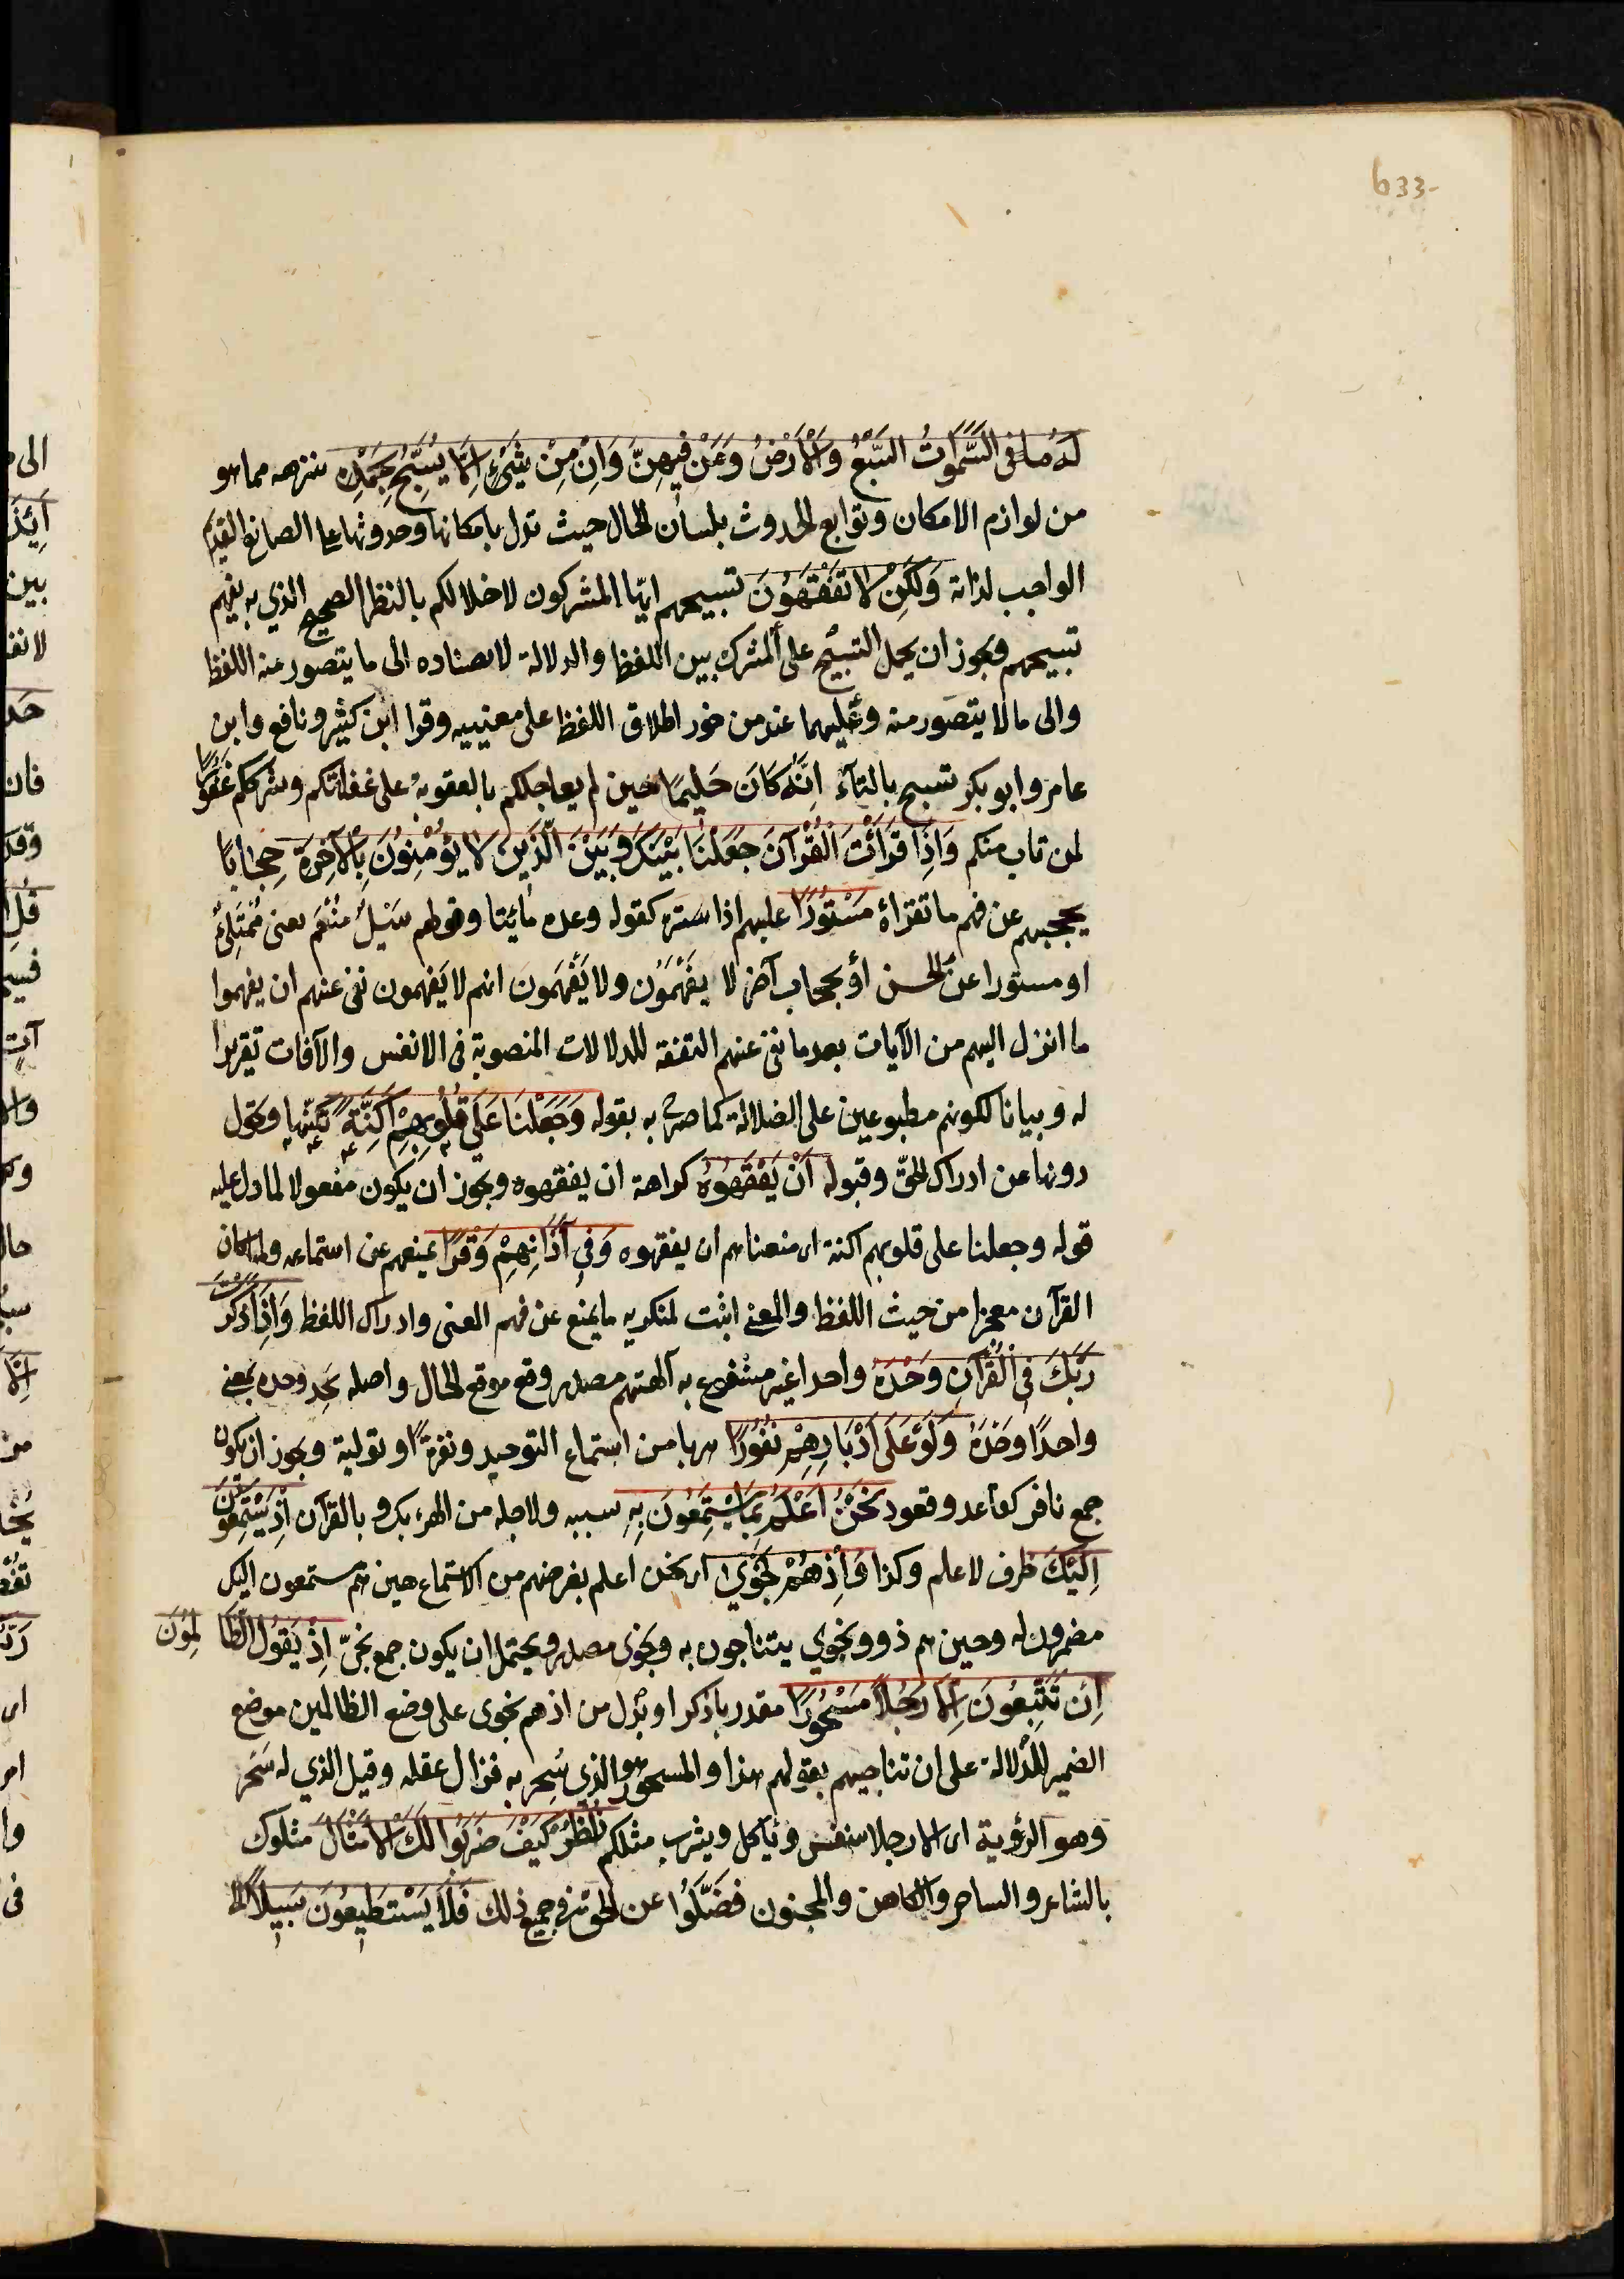 633-
لَهُ مَا فى السَّمٰوَاتُ السَّبْعُ وَالْاَرْضُ وَمَنْ فِيهِنَّ وَاِنْ مِنْ شَيْءٍ اِلَّا يُسَبِّحُ بِحَمْدِهِ ينزهه مما هو
من لوازم الامكان وتوابع الحدوث بلسان الحال حيث تدل بامكانها وحدوثها على الصانع القديم
الواجب لذاته وَلَكِنْ لَا تَفْقَهُونَ تسبيحهم ايها المشركون لاخلالكم بالنظر الصحيح الذي به يفهم
تسبيحهم ويجوز ان يحمل التسبيح على المشترك بين اللفظ والدلالة لاسناده الى ما يتصور منه اللفظ
والى ما لا يتصور منه وعليهما عند من جوز اطلاق اللفظ على معنييه وقرا ابن كثير ونافع وابن
عامر وابو بكر تسبح بالتآء اِنَّهُ كَانَ حَلِيمًا حين لم يعاجلكم بالعقوبة على غفلتكم وشرككم غَفُورًا
لمن تاب منكم وَاِذَا قَرَأْتَ الْقُرْآنَ جَعَلْنَا بَيْنَكَ وَبَيْنَ الَّذِينَ لَا يُؤْمِنُونَ بِالْآخِرَةِ حِجَابًا
يحجبهم عن فهم ما تقرأه مَسْتُورًا عليهم اذا ستره كقوله وعده مأتيا وقولهم سَيْلٌ مُفْعَم بمعنى مُمْتَلِئٌ
او مستورا عن الحسن أو بحجاب آخر لا يفهمون ولا يَفْهَمُون انهم لا يفهمون نفى عنهم ان يفهموا
ما انزل اليهم من الآيات بعد ما نفى عنهم التفقه للدلالات المنصوبة فى الانفس والآفاق تقريرا
له وبيانا لكونهم مطبوعين على الضلالة كما صرح به بقوله وَجَعَلْنَا عَلَى قُلُوبِهِمْ اَكِنَّةً تكنّها وتحول
دونها عن ادراك الحقّ وقبوله اَنْ يَفْقَهُوهُ كراهة ان يفقهوه ويجوز ان يكون مفعولا لما دل عليه
قوله وجعلنا على قلوبهم اكنة اى منعناهم ان يفقهوه وَفِي آذَانِهِمْ وَقْرًا يمنعهم عن استماعه ولما كان
القرآن معجزا من حيث اللفظ والمعنى اثبت لمنكريه ما يمنع عن فهم المعنى وادراك اللفظ وَاِذَا ذَكَرْتَ
رَبَّكَ فِى الْقُرْآنِ وَحْدَهُ واحدا غير مشفوع به آلهتهم مصدر وقع موقع الحال واصله يحد وحده بمعنى
واحدًا وحْدَهُ وَلَّوْ عَلَى اَدْبَارِهِمْ نُفُورًا هربا من استماع التوحيد ونفرةً او تولية ويجوز ان يكون
جمع نافر كقاعد وقعود نَحْنُ اَعْلَمُ بِمَا يَسْتَمِعُونَ بِهِ سببه ولاجله من الهزء بك وبالقرآن اِذْ يَسْتَمِعُونَ
اِلَيْكَ ظرف لاعلم وكذا وَاِذْ هُمْ نَجْوَى اى نحن اعلم بغرضهم من الاستماع حين هم مستمعون اليك
مضمرون له وحين هم ذوو نجوي يتناجون به ونجوى مصدر ويحتمل ان يكون جمع نجىّ اِذْ يَقُولُ الظَّالِمُونَ
اِنْ تَتَّبِعُونَ اِلَّا رَجُلاً مَسْحُورًا مقدر باذكر او بدل من اذ هم نجوى على وضع الظالمين موضع
الضمير للدلالة على ان تناجيهم بقولهم هذا والمسحور هو الذى سُحِرَ به فزال عقله وقيل الذي له سَحْر
وهو الرؤية اى الا رجلا يتنفس ويأكل ويشرب مثلكم اُنْظُرْ كَيْفَ ضَرَبُوا لَكَ الْاَمْثَالَ مثلوك
بالشاعر والساحر والكاهن والمجنون فَضَلُّوا عن الحق فى جميع ذلك فَلَا يَسْتَطِيعُونَ سَبِيلاً